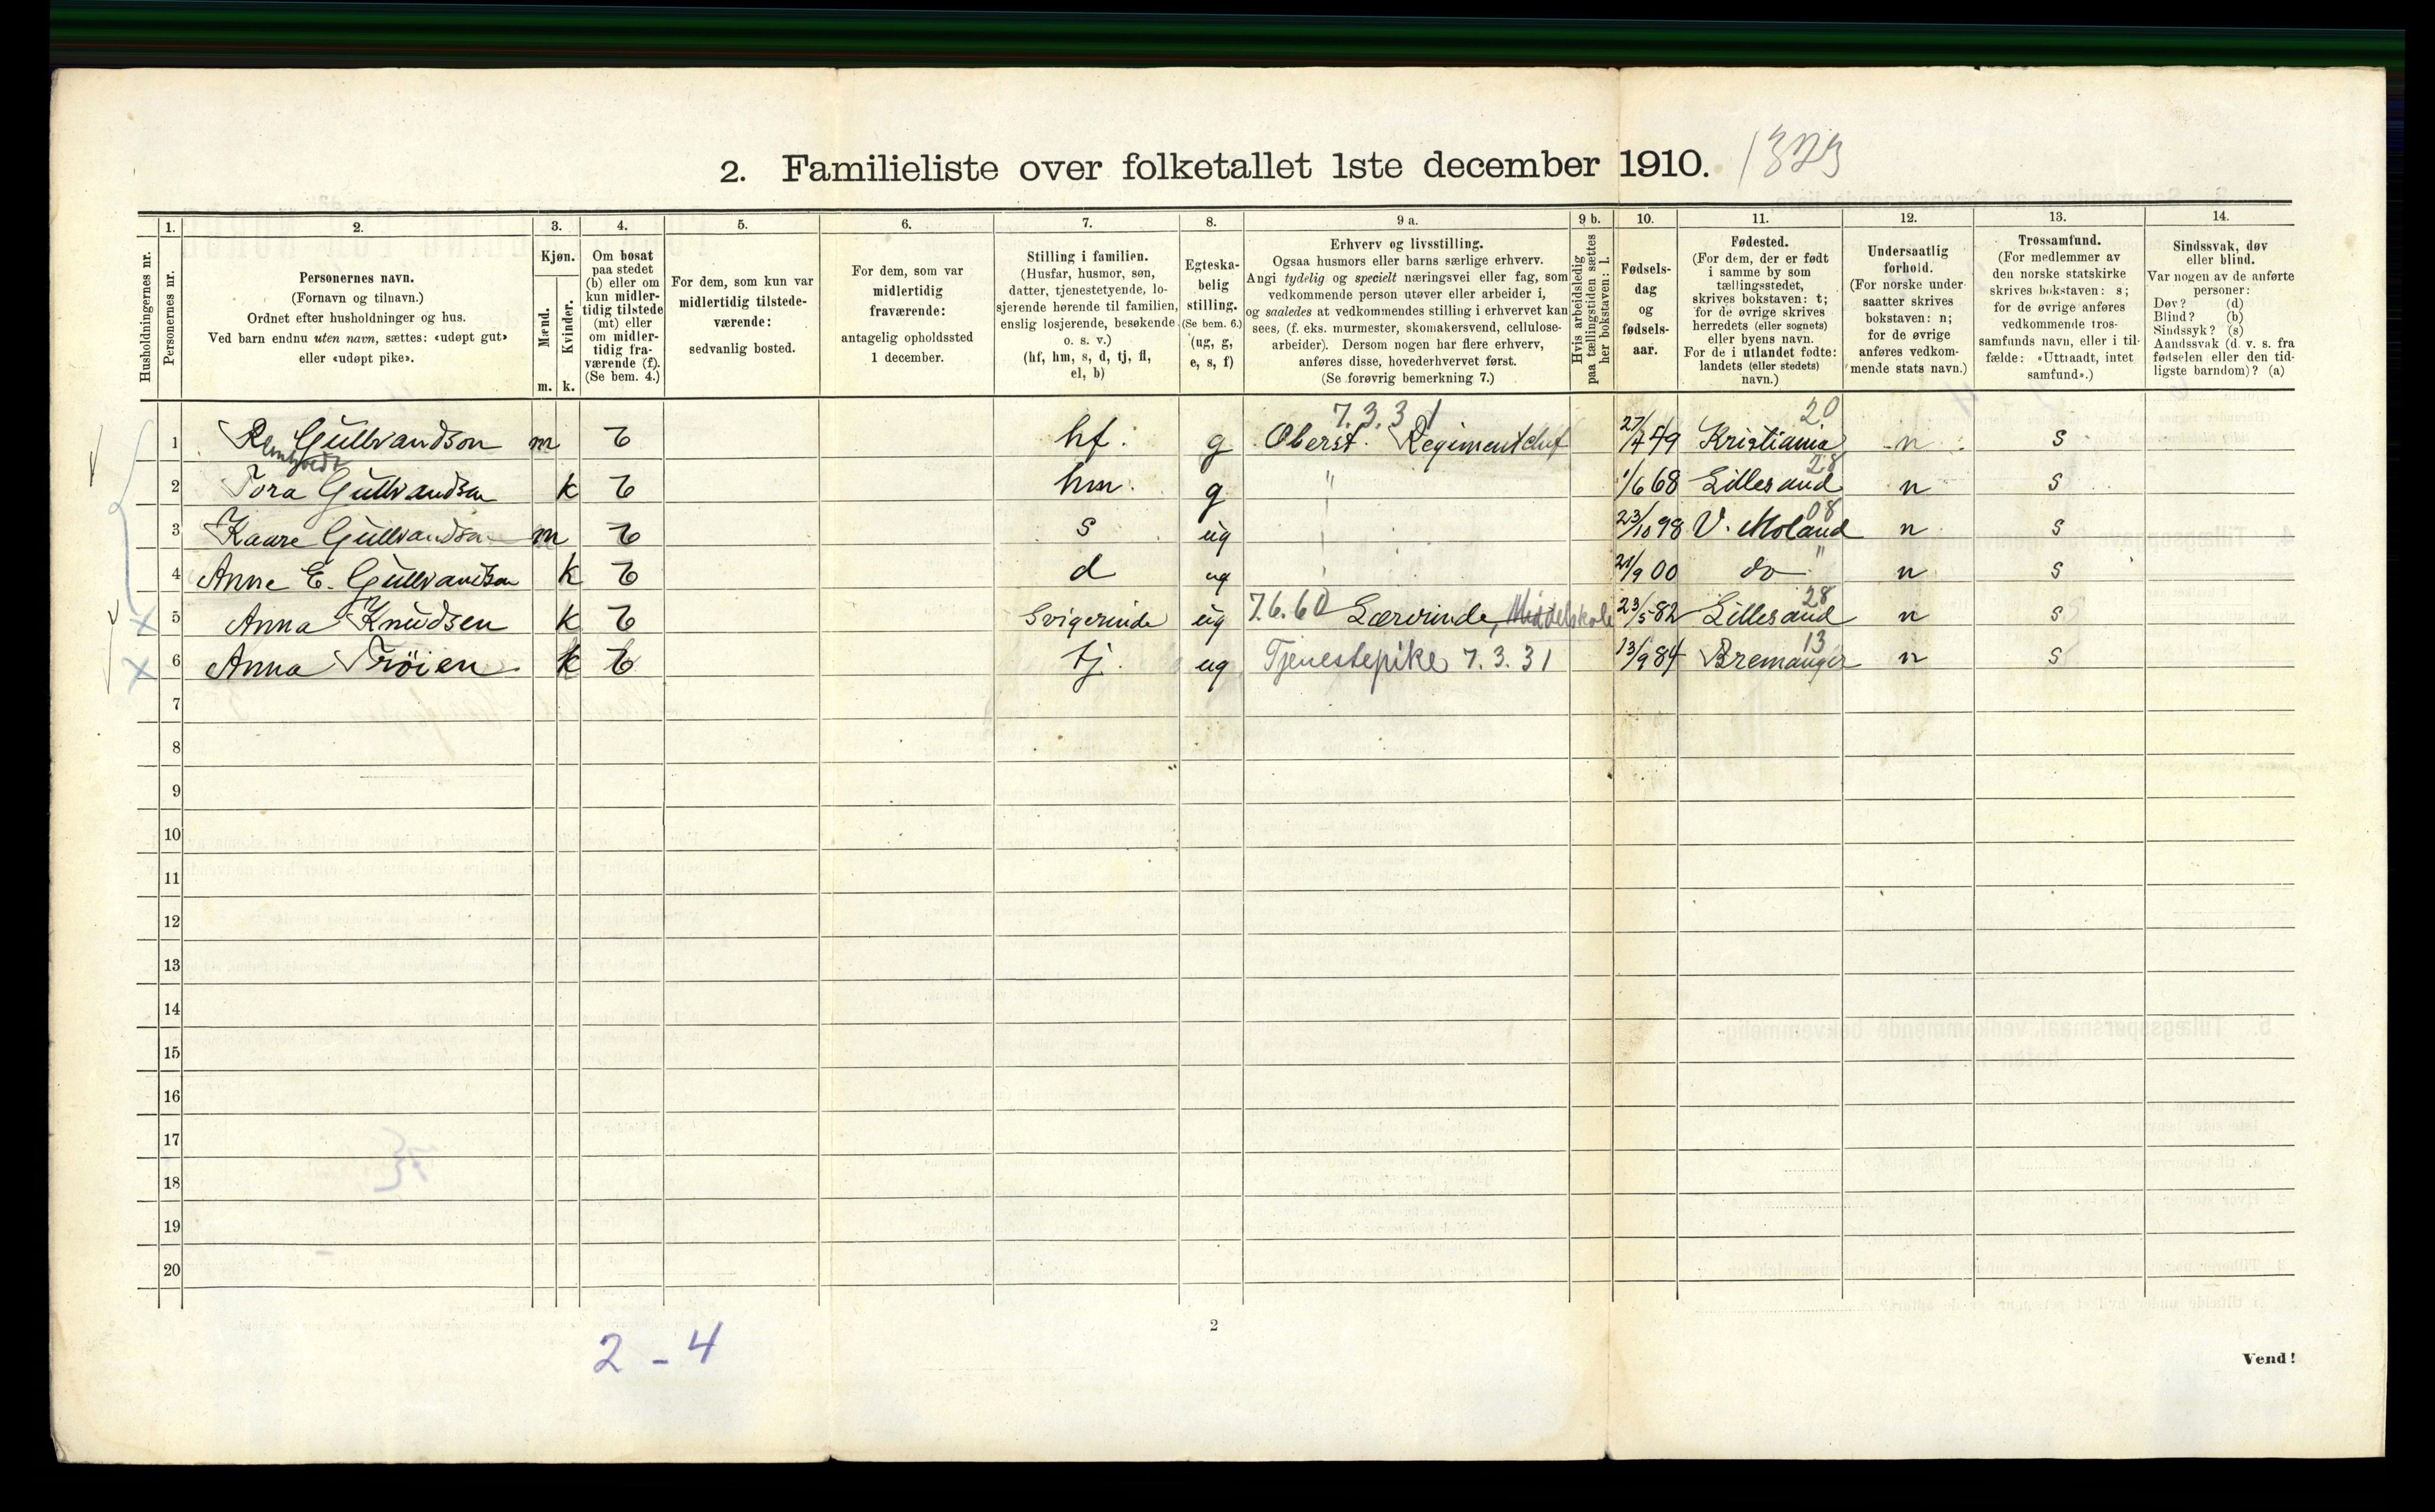 2. Familieliste over folketallet 1ste december 1910. 1323
Husholdningernes nr.
1.
Personernes nr.
2.
Personernes navn.
(Fornavn og tilnavn.)
Ordnet efter husholdninger og hus.
Ved barn endnu uten navn, sættes: «udøpt gut»
eller «udøpt pike».
3.
Kjøn.
Mænd.
Kvinder.
m. k.
4.
Om bosat
paa stedet
(b) eller om
kun midler-
tidig tilstede
(mt) eller
om midler-
tidig fra-
værende (f).
(Se bem. 4.)
5.
For dem, som kun var
midlertidig tilstede-
værende:
sedvanlig bosted.
6.
For dem, som var
midlertidig
fraværende:
antagelig opholdssted
1 december.
7.
Stilling i familien.
(Husfar, husmor, søn,
datter, tjenestetyende, lo-
sjerende hørende til familien,
enslig losjerende, besøkende
o. s. v.)
(hf, hm, s, d, tj, fl,
el, b)
8.
Egteska-
belig
stilling.
(Se bem. 6.)
(ug, g,
e, s, f)
9 a.
Erhverv og livsstilling.
Ogsaa husmors eller barns særlige erhverv.
Angi tydelig og specielt næringsvei eller fag, som
vedkommende person utøver eller arbeider i,
og saaledes at vedkommendes stilling i erhvervet kan
sees, (f. eks. murmester, skomakersvend, cellulose-
arbeider). Dersom nogen har flere erhverv,
anføres disse, hovederhvervet først.
(Se forøvrig bemerkning 7.)
9 b.
Hvis arbeidsledig
paa tællingstiden sættes
her bokstaven: l.
10.
Fødsels-
dag
og
fødsels-
aar.
11.
Fødested.
(For dem, der er født
i samme by som
tællingsstedet,
skrives bokstaven: t;
for de øvrige skrives
herredets (eller sognets)
eller byens navn.
For de i utlandet fødte:
landets (eller stedets)
navn.)
12.
Undersaatlig
forhold.
(For norske under-
saatter skrives
bokstaven: n;
for de øvrige
anføres vedkom-
mende stats navn.)
13.
Trossamfund.
(For medlemmer av
den norske statskirke
skrives bokstaven: s;
for de øvrige anføres
vedkommende tros-
samfunds navn, eller i til-
fælde: «Uttraadt, intet
samfund».)
14.
Sindssvak, døv
eller blind.
Var nogen av de anførte
personer:
Døv? (d)
Blind? (b)
Sindssyk? (s)
Aandssvak (d. v. s. fra
fødselen eller den tid-
ligste barndom)? (a)
7.3.31 20
1 Gullrandson m b hf. g Oberst. Regimentchef 27/7 49 Kristiania n s
28
2 Tora Gullrandson k b hm. g " 1/6 68 Lillesand n s
08
3 Kaare Gullrandson m b s ug 23/10 98 V. Moland n s
4 Anne E. Gullrandson k b d ug 21/9 00 do " n s
28
5 Anna Knudsen k b Svigerinde ug 7.6.60 Lærerinde, Middelskole 23/5 82 Lillesand n s
13
6 Anna Tröien k b tj. ug Tjenestepike 7.3.31 13/9 84 Bremanger n s
7
8
9
10
11
12
13
14
15
16
17
18
19
20
2
2 - 4
Vend!